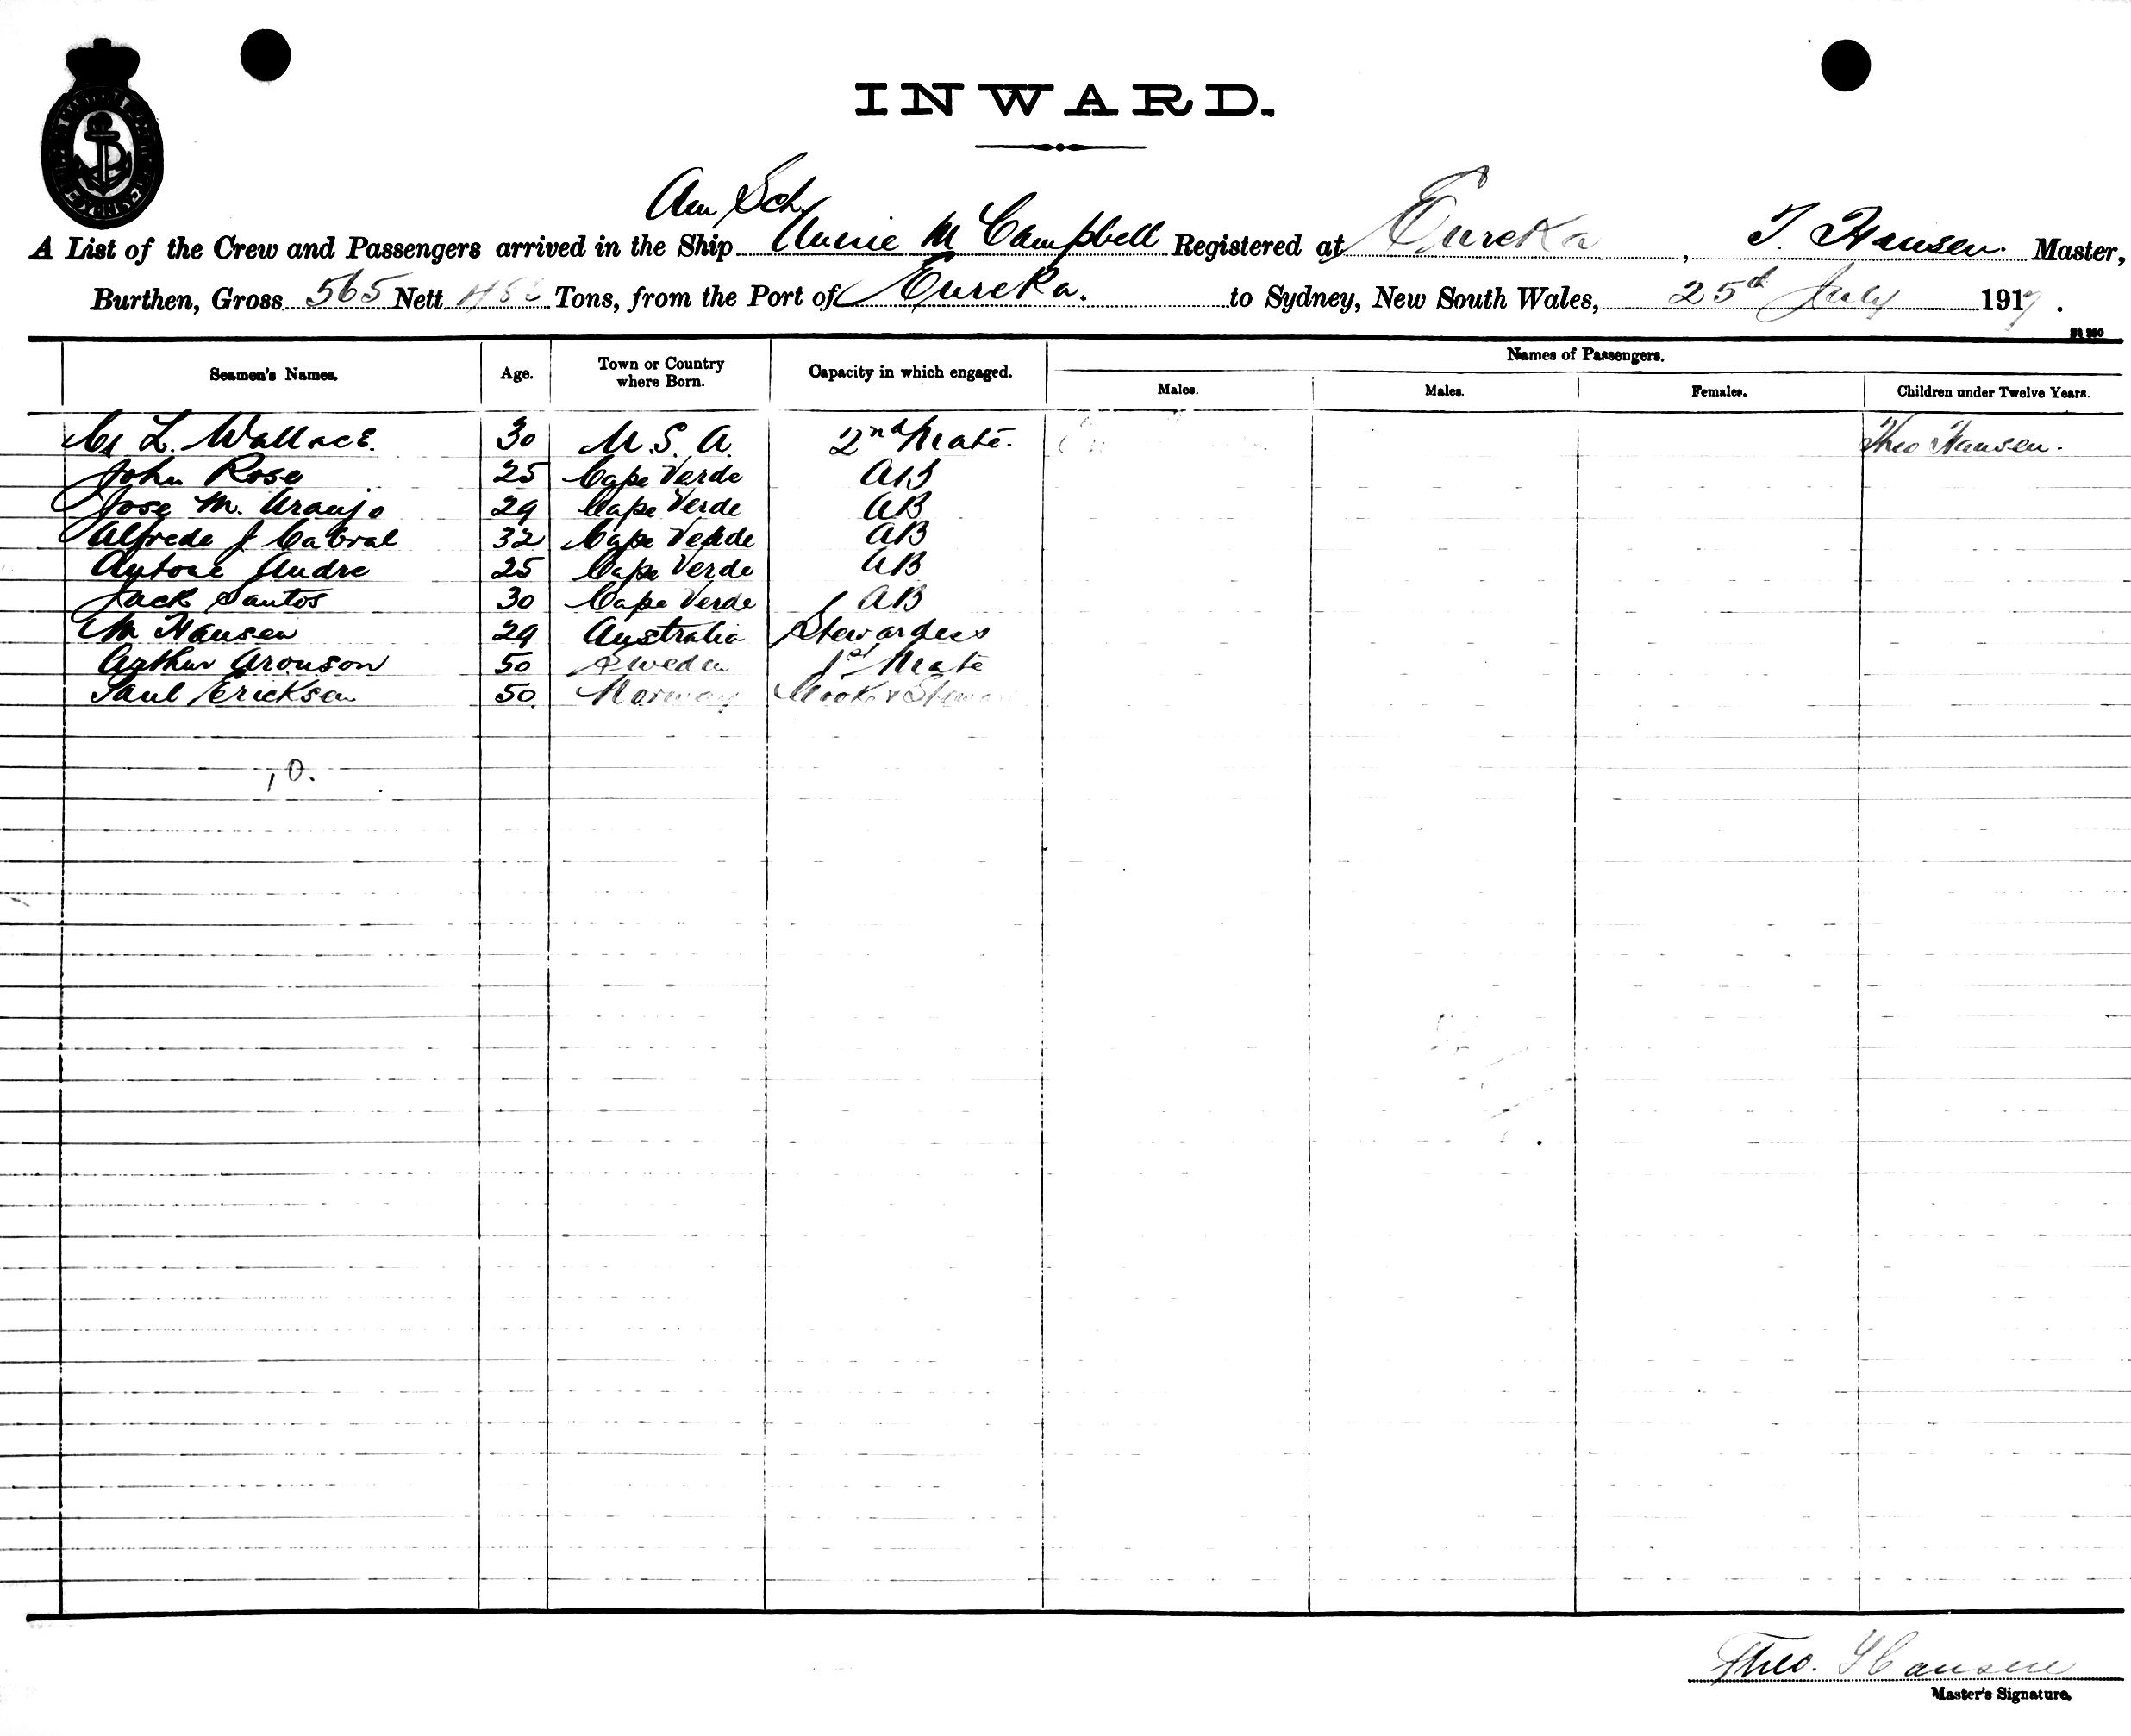 INWARD.
Am Sch.
A List of the Crew and Passengers arrived in the Ship Annie M Campbell Registered at Eureka, T. Hansen Master,
Burthen, Gross 565 Nett Tons, from the Port of Eureka. to Sydney, New South Wales, 25th July 191.
Seamen's Names. Age. Town or Country where Born. Capacity in which engaged. Names of Passengers.
Males. Males. Females. Children under Twelve Years.
L. Wallace. 30 U.S.A. 2nd Mate. Theo Hansen.
John Rose 25 Cape Verde AB
Jose M. Araujo 29 Cape Verde AB
Alfrede J Cabral 32 Cape Verde AB
Antone Andre 25 Cape Verde AB
Jack Santos 30 Cape Verde AB
M Hansen 29 Australia Stewardess
Arthur Aronson 50 Sweden 1st Mate
Paul Ericksen 50. Norway Cook & Stewa
10.
Theo. Hansen
Master's Signature.